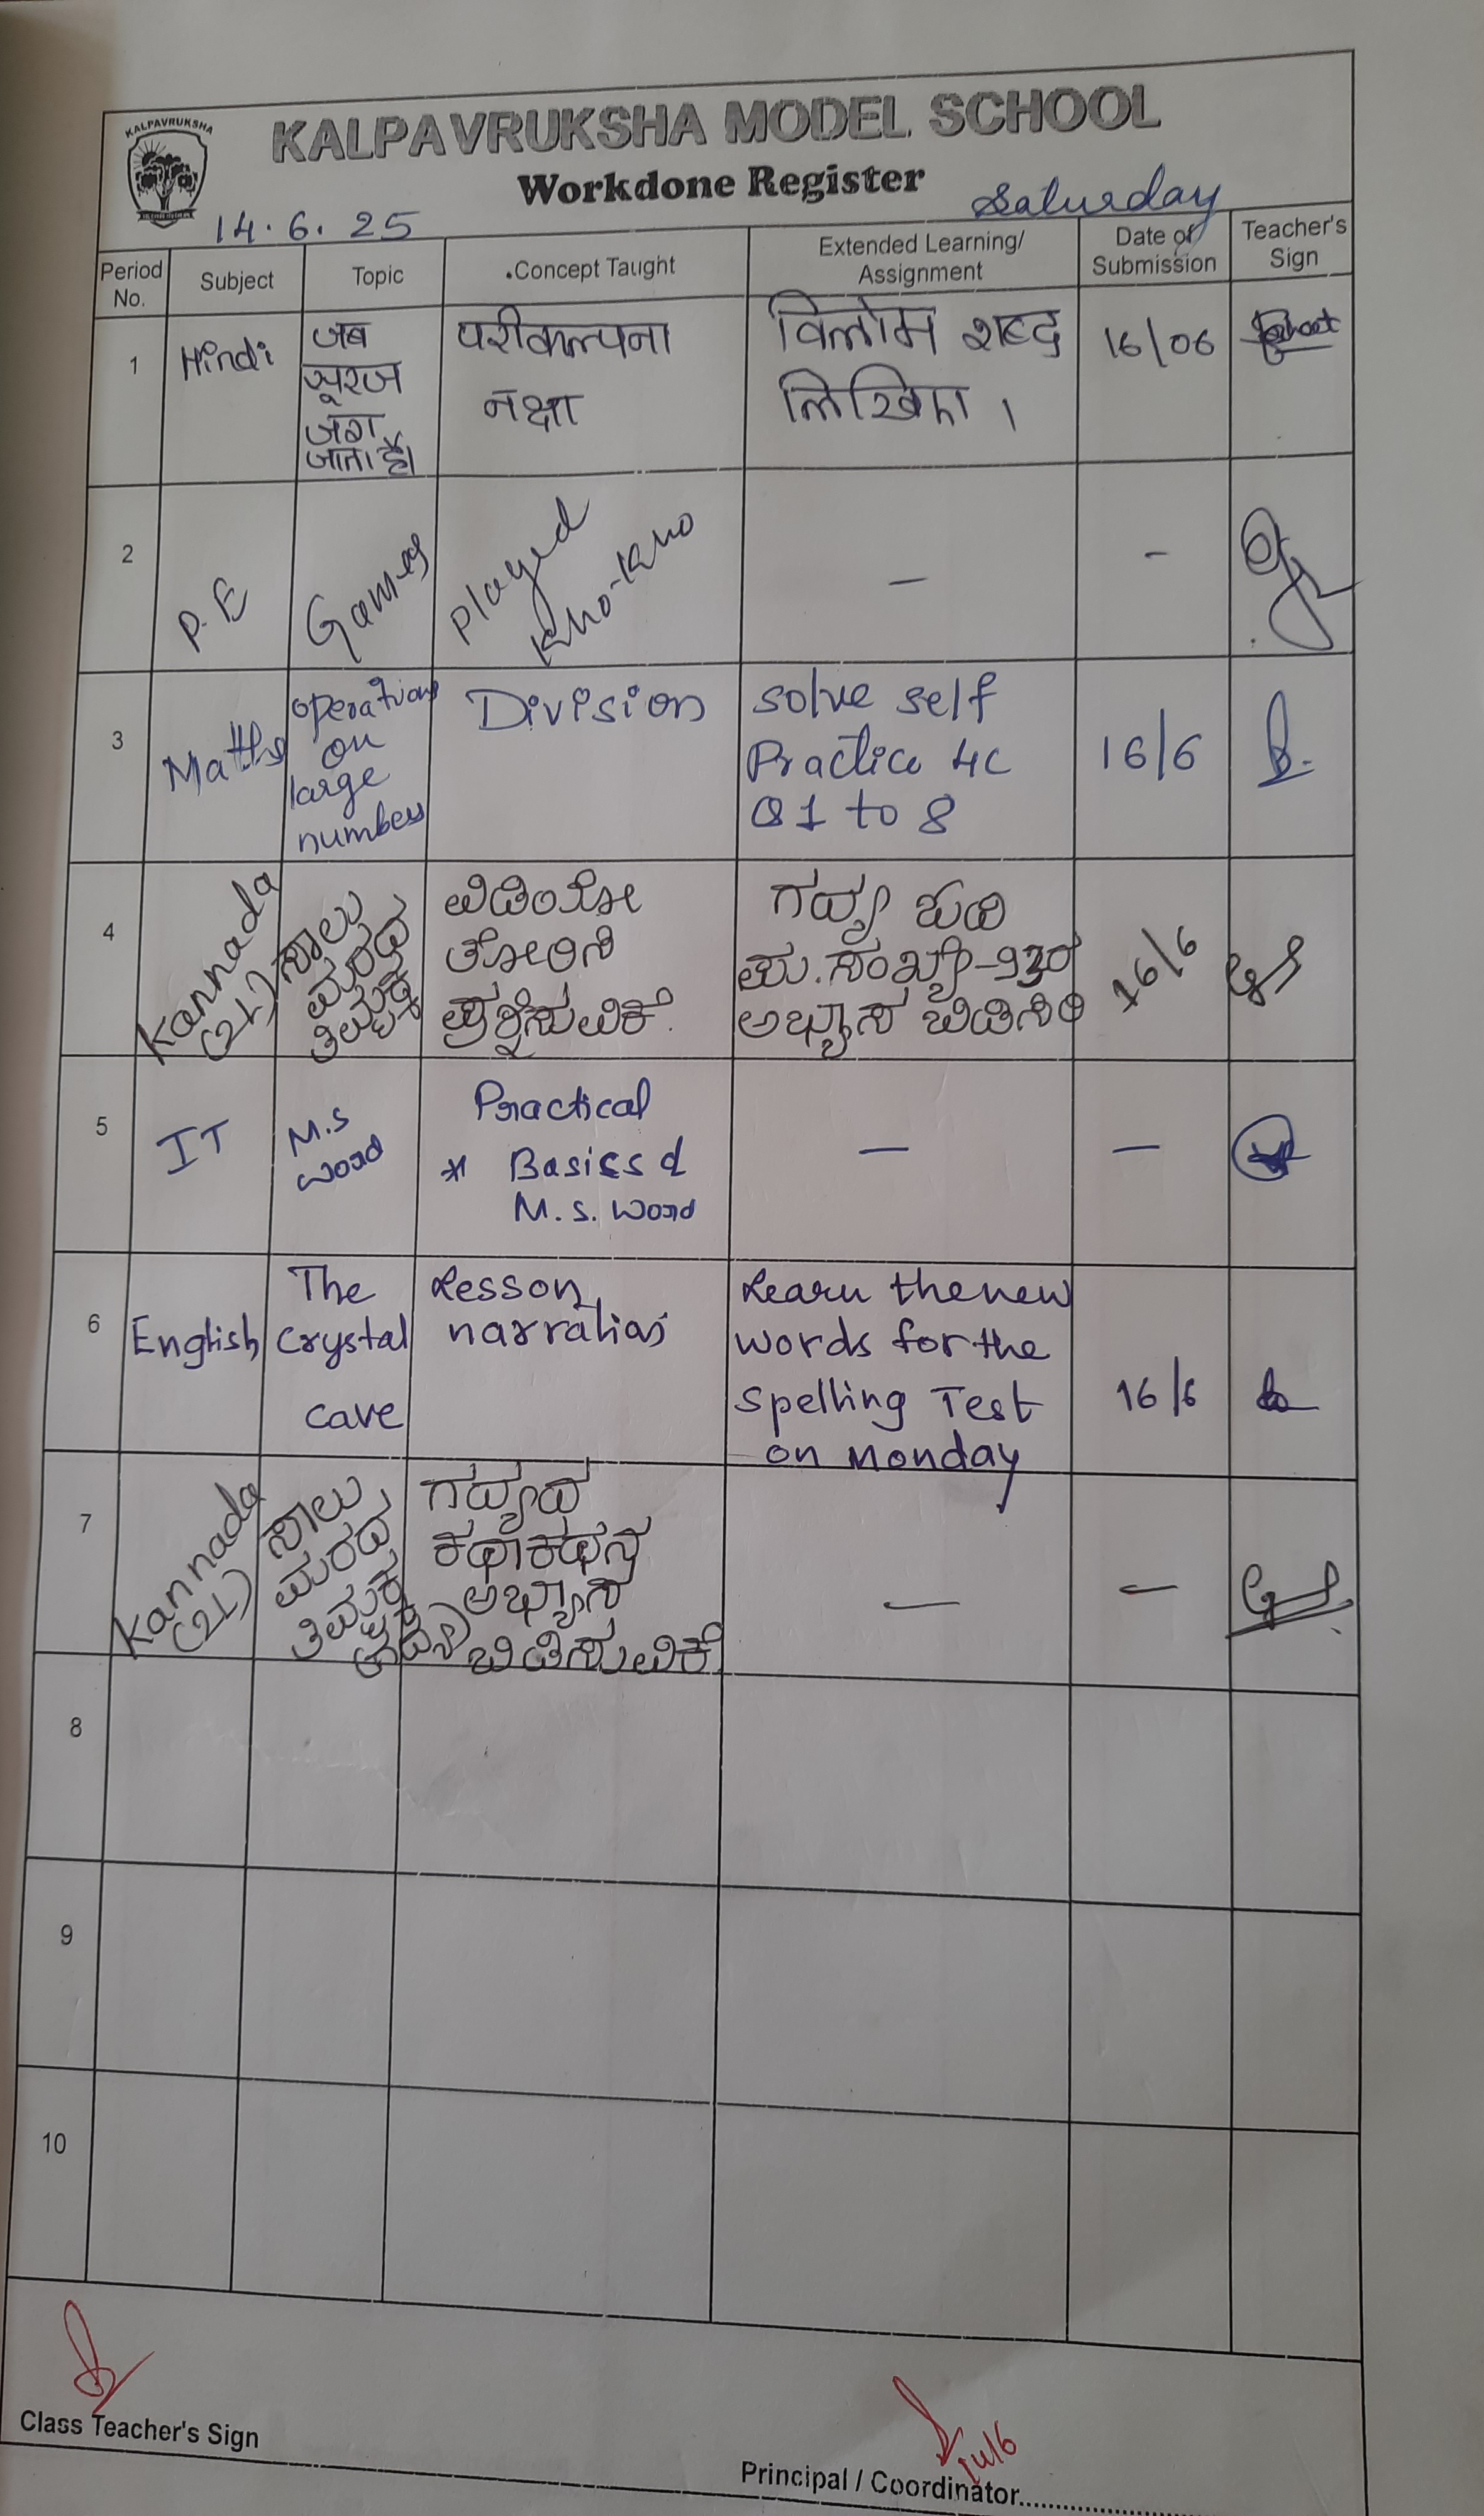 KALPAVRUKSHA
KALPAVRUKSHA MODEL SCHOOL
Workdone Register
14.6.25
Saturday
Period No.
Subject
Topic
Concept Taught
Extended Learning/
Assignment
Date of
Submission
Teacher's
Sign
1
Hindi
जब
सूरज
जग
जाता है।
परीकल्पना
नक्षा
विलोम शब्द
लिखिए।
16/06
2
P.E
Games
Played
Kho-Kho
—
-
3
Maths
operations
on
large
numbers
Division
Solve self
Practice 4C
Q1 to 8
16/6
4
Kannada
(2L)
ಸಾಲು
ಮರದ
ತಿಮ್ಮಕ್ಕ
ವಿಡಿಯೋ
ತೋರಿಸಿ
ಪ್ರಶ್ನಿಸುವಿಕೆ.
ಗದ್ಯ ಓದಿ
ಪು.ಸಂಖ್ಯೆ-
ಅಭ್ಯಾಸ ಬಿಡಿಸಿರಿ
16/6
5
IT
M.S
Word
Practical
* Basics of
M.S. Word
—
—
6
English
The
Crystal
cave
Lesson
narration
Learn the new
words for the
Spelling Test
on Monday
16/6
7
Kannada
(2L)
ಸಾಲು
ಮರದ
ತಿಮ್ಮಕ್ಕ
(ಗದ್ಯ)
ಗದ್ಯದ
ಕಥಾಕಥನ
ಅಭ್ಯಾಸ
ಬಿಡಿಸುವಿಕೆ
—
—
8
9
10
Class Teacher's Sign
Principal / Coordinator